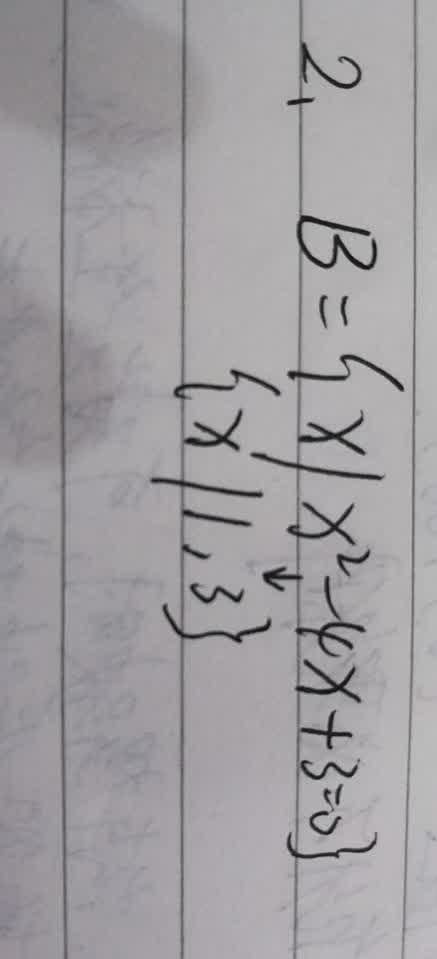 2, B={x|x²-4x+3=0}
↓
{x|1,3}